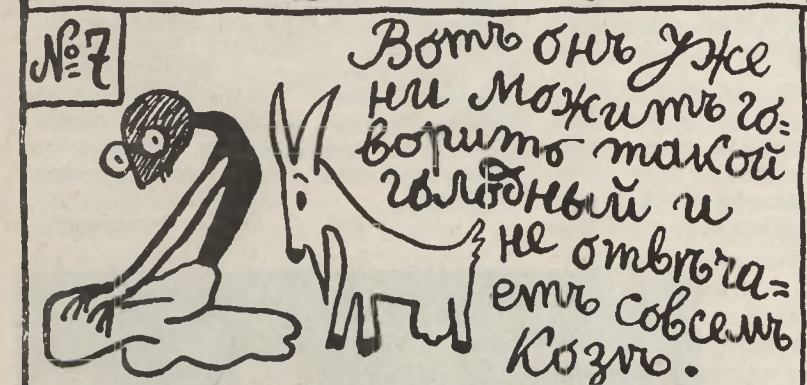 №7
Вотъ онъ уже
ни можитъ го=
ворить такой
голодный и
не отвѣча=
етъ совсемъ
Козѣ.